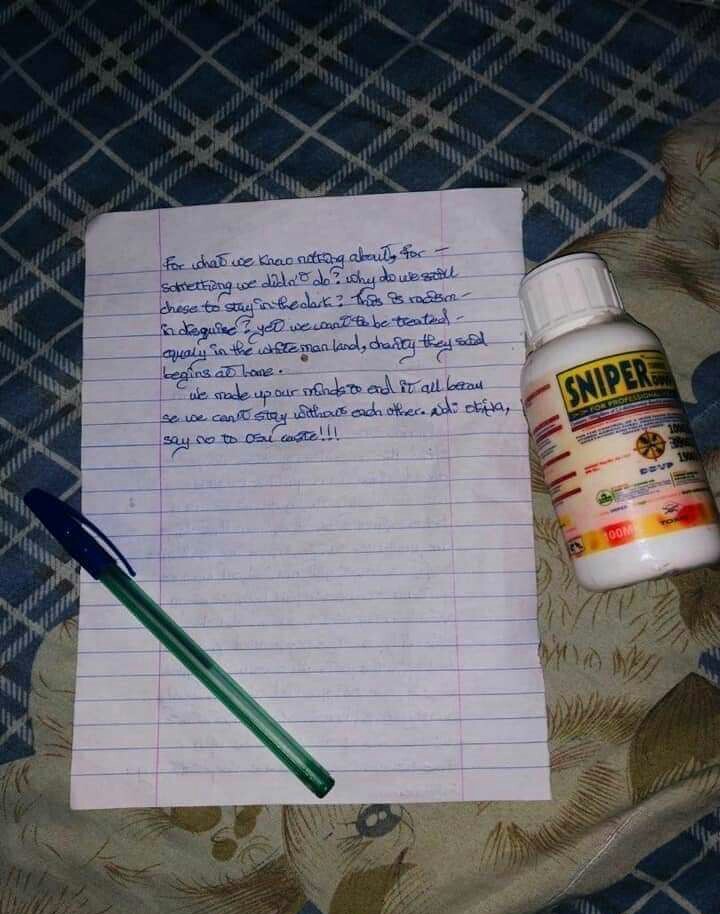 For what we know nothing about, for -
something we didn't do? why do we still
chose to stay in the dark? this is racism -
in disguise? yet we want to be treated -
equaly in the white man land, charity they said
begins at home.
we made up our minds to end it all becau
se we can't stay without each other. Ndi obija,
say no to osu caste!!!
SNIPER
FOR PROFESSIONAL
DDVP
100M